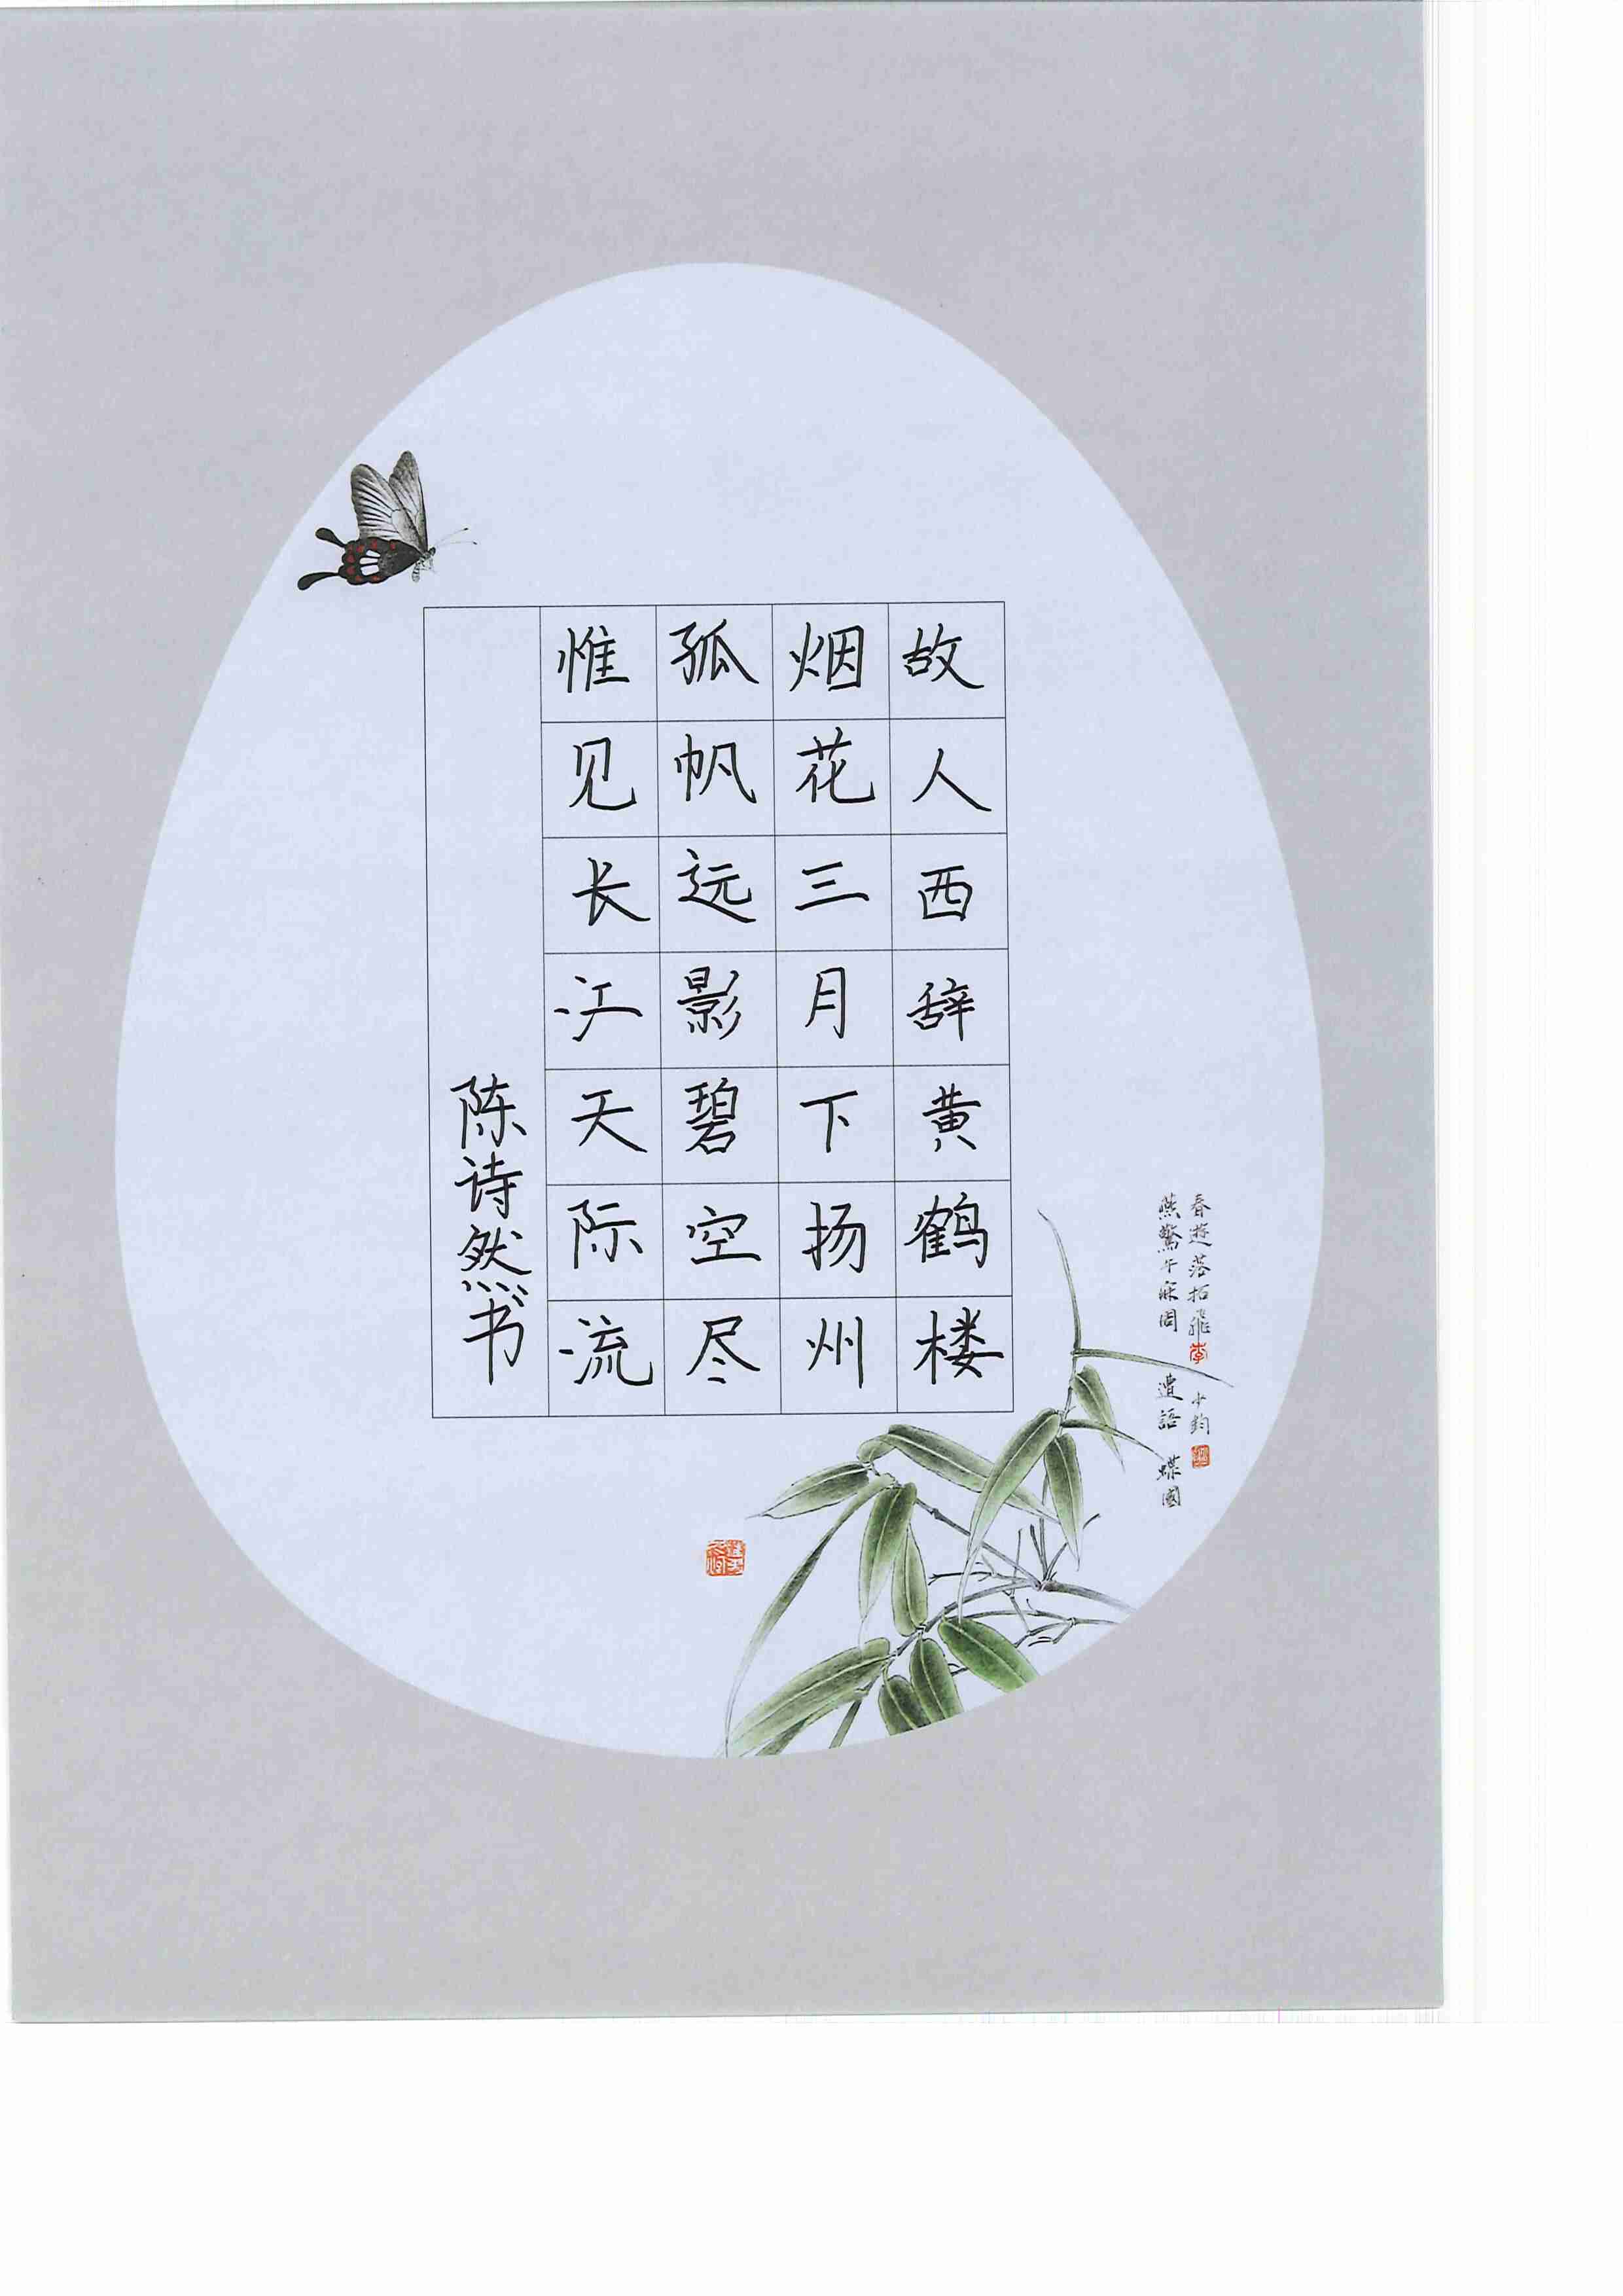 故人西辞黄鹤楼
烟花三月下扬州
孤帆远影碧空尽
惟见长江天际流
陈诗然书
春遊落拓飛
李
少鈞
燕驚午寐周
遣語
蝶園